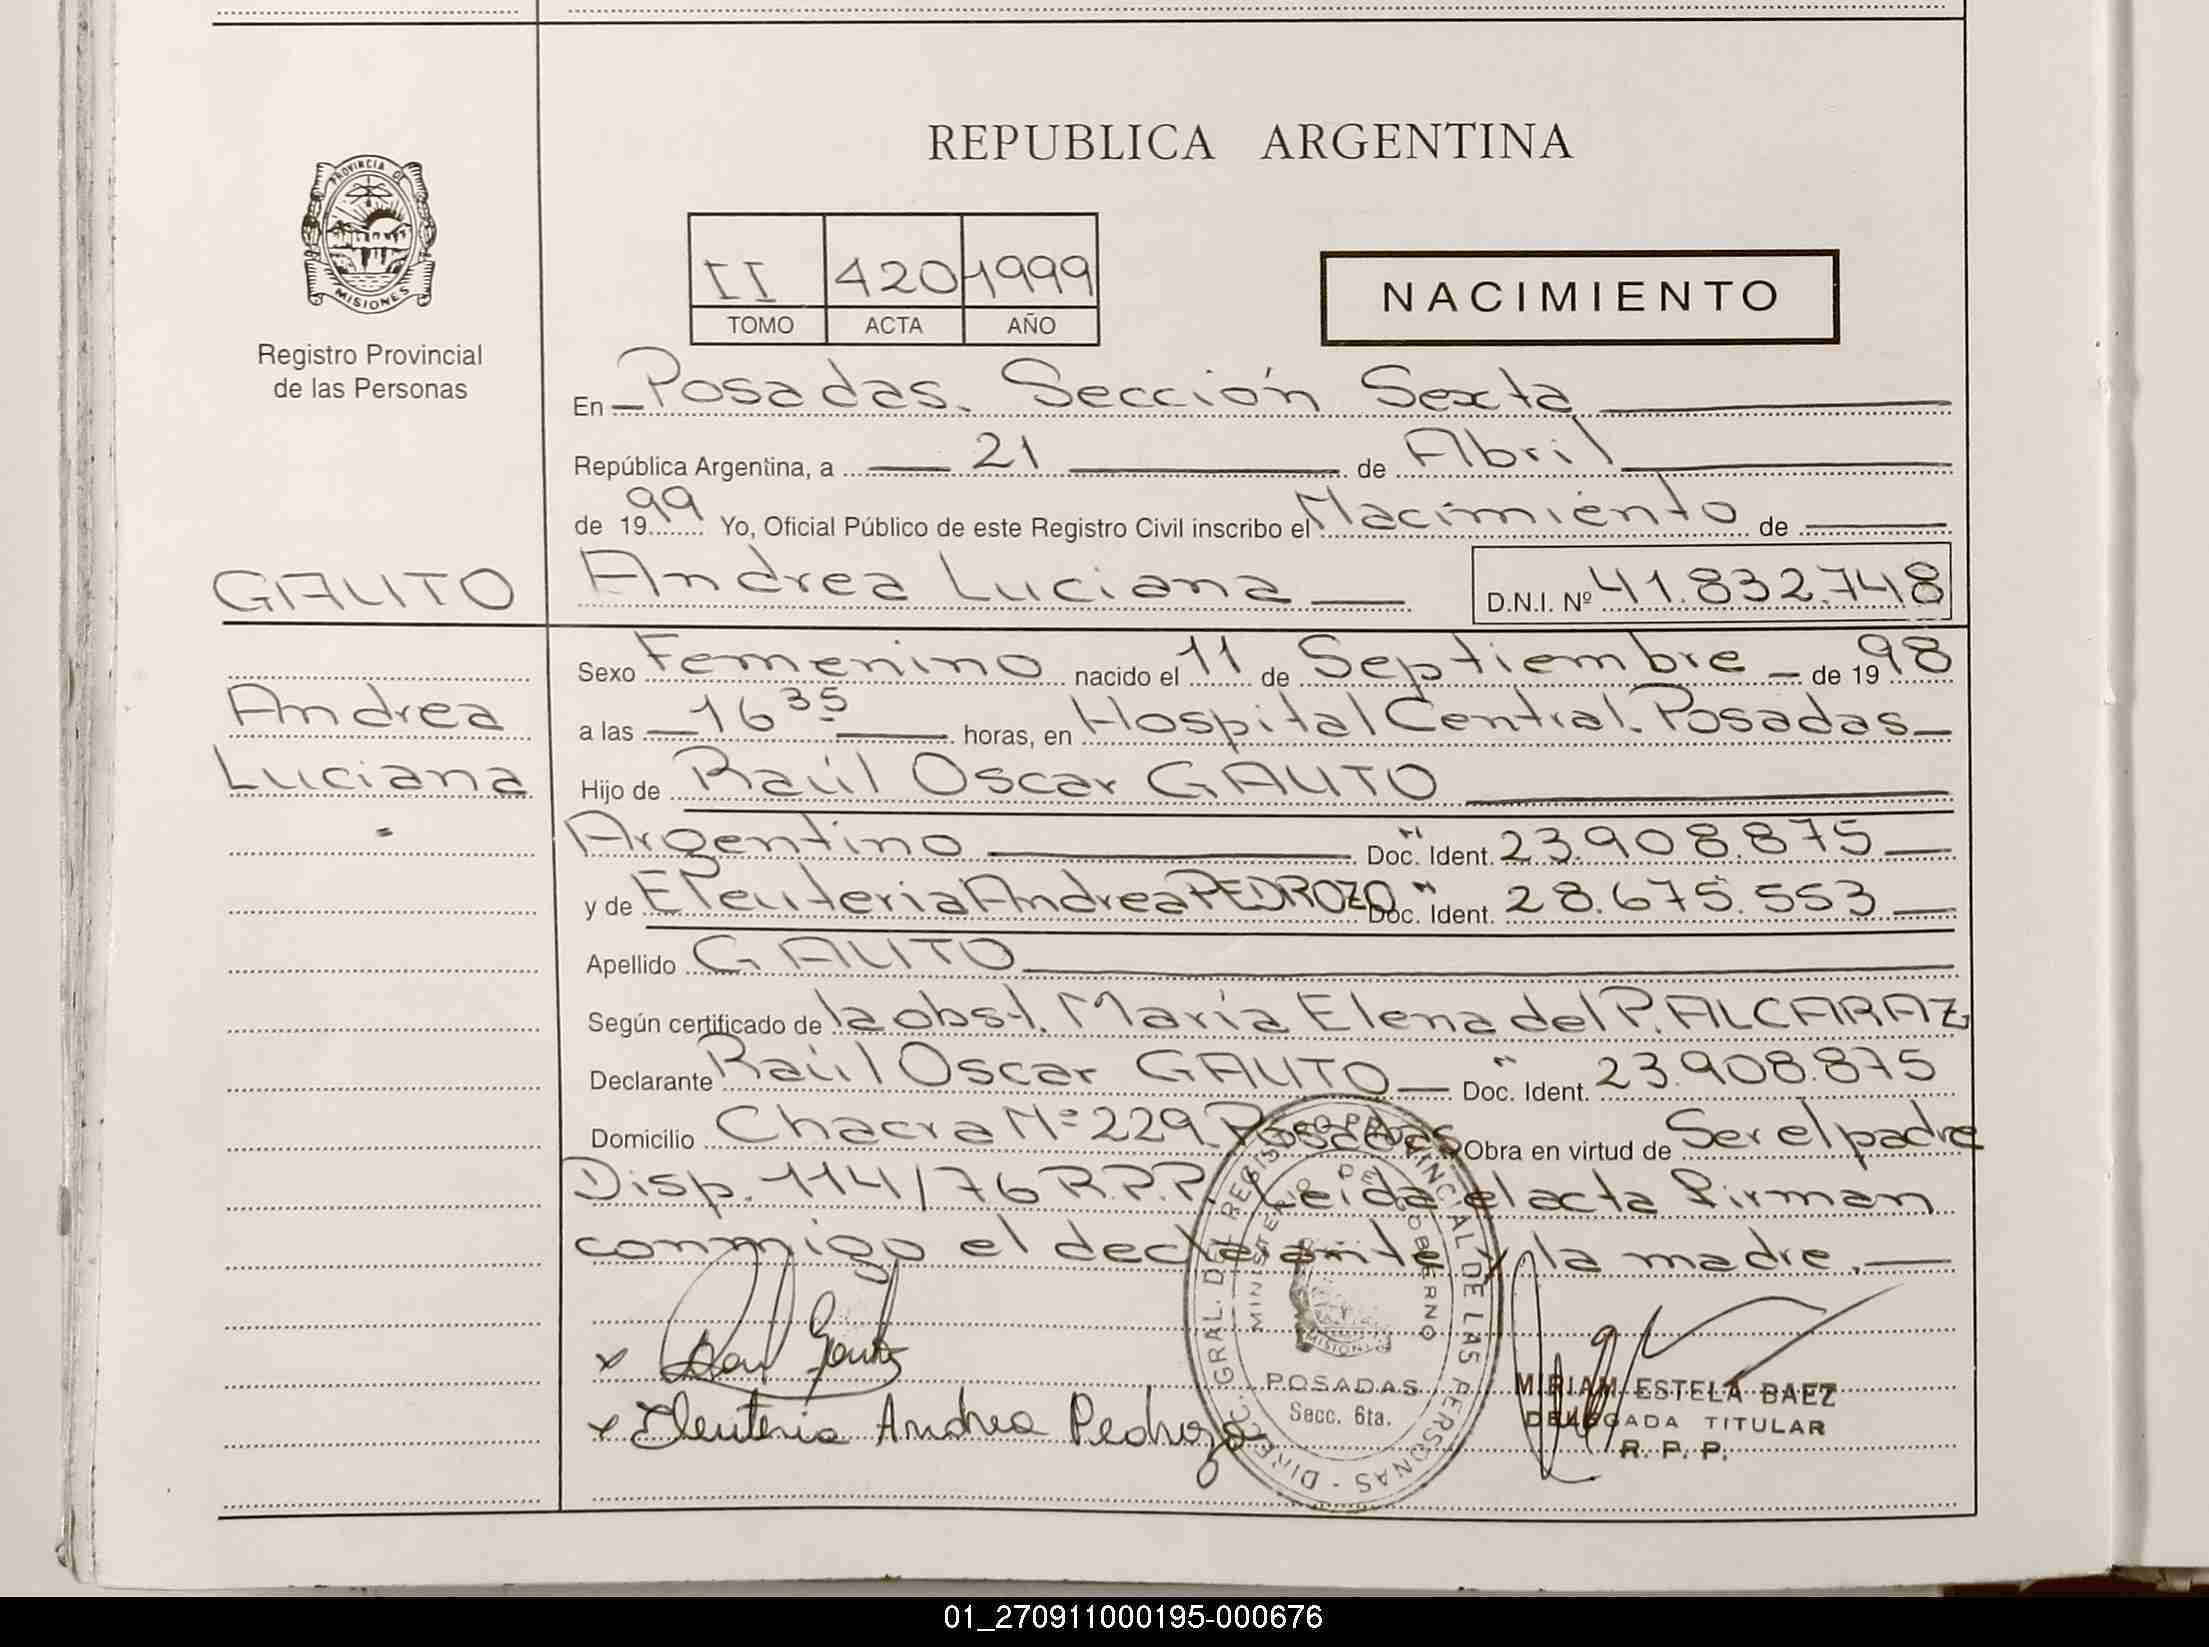 REPUBLICA ARGENTINA
PROVINCIA DE
MISIONES
Registro Provincial
de las Personas
II 420 1999
TOMO ACTA AÑO
NACIMIENTO
En Posadas. Sección Sexta
República Argentina, a 21 de Abril
de 1999 Yo, Oficial Público de este Registro Civil inscribo el Nacimiento de
GAUTO Andrea Luciana D.N.I. Nº 41.832.748
Sexo Femenino nacido el 11 de Septiembre de 1998
Andrea
a las 16 35 horas, en Hospital Central. Posadas
Luciana
Hijo de Raúl Oscar GAUTO
Argentino Doc. Ident. 23.908.875
y de Eleuteria Andrea PEDROZO Doc. Ident. 28.675.553
Apellido GAUTO
Según certificado de la obst. María Elena del P. ALCARAZ
Declarante Raúl Oscar GAUTO Doc. Ident. 23.908.875
Domicilio Chacra Nº 229 Posadas Obra en virtud de Ser el padre
Disp. 114/76 R.P.P. Leida el acta firman
conmigo el declarante y la madre.
x Raul Gauto
x Eleuteria Andrea Pedrozo
DIREC. GRAL. DEL REGISTRO PROVINCIAL DE LAS PERSONAS -
MINISTERIO DE GOBIERNO
MISIONES
POSADAS
Secc. 6ta.
MIRIAM ESTELA BAEZ
DELEGADA TITULAR
R. P. P.
01_270911000195-000676